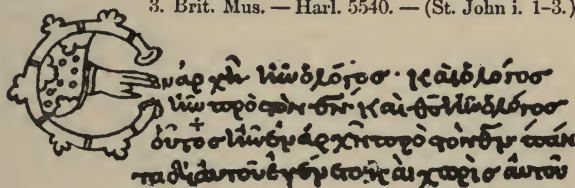 3. Brit. Mus. — Harl. 5540. — (St. John i. 1-3.)
Ἐν ἀρχῆ ἦν ὁ λόγος · καὶ ὁ λόγος
ἦν πρὸς τὸν θν̄ καὶ θς̄ ἦν ὁ λόγος
οὗτος ἦν ἐν ἀρχῆ πρὸς τὸν θν̄ πάν
τα δι αὐτοῦ ἐγένετο καὶ χωρὶς αὐτοῦ